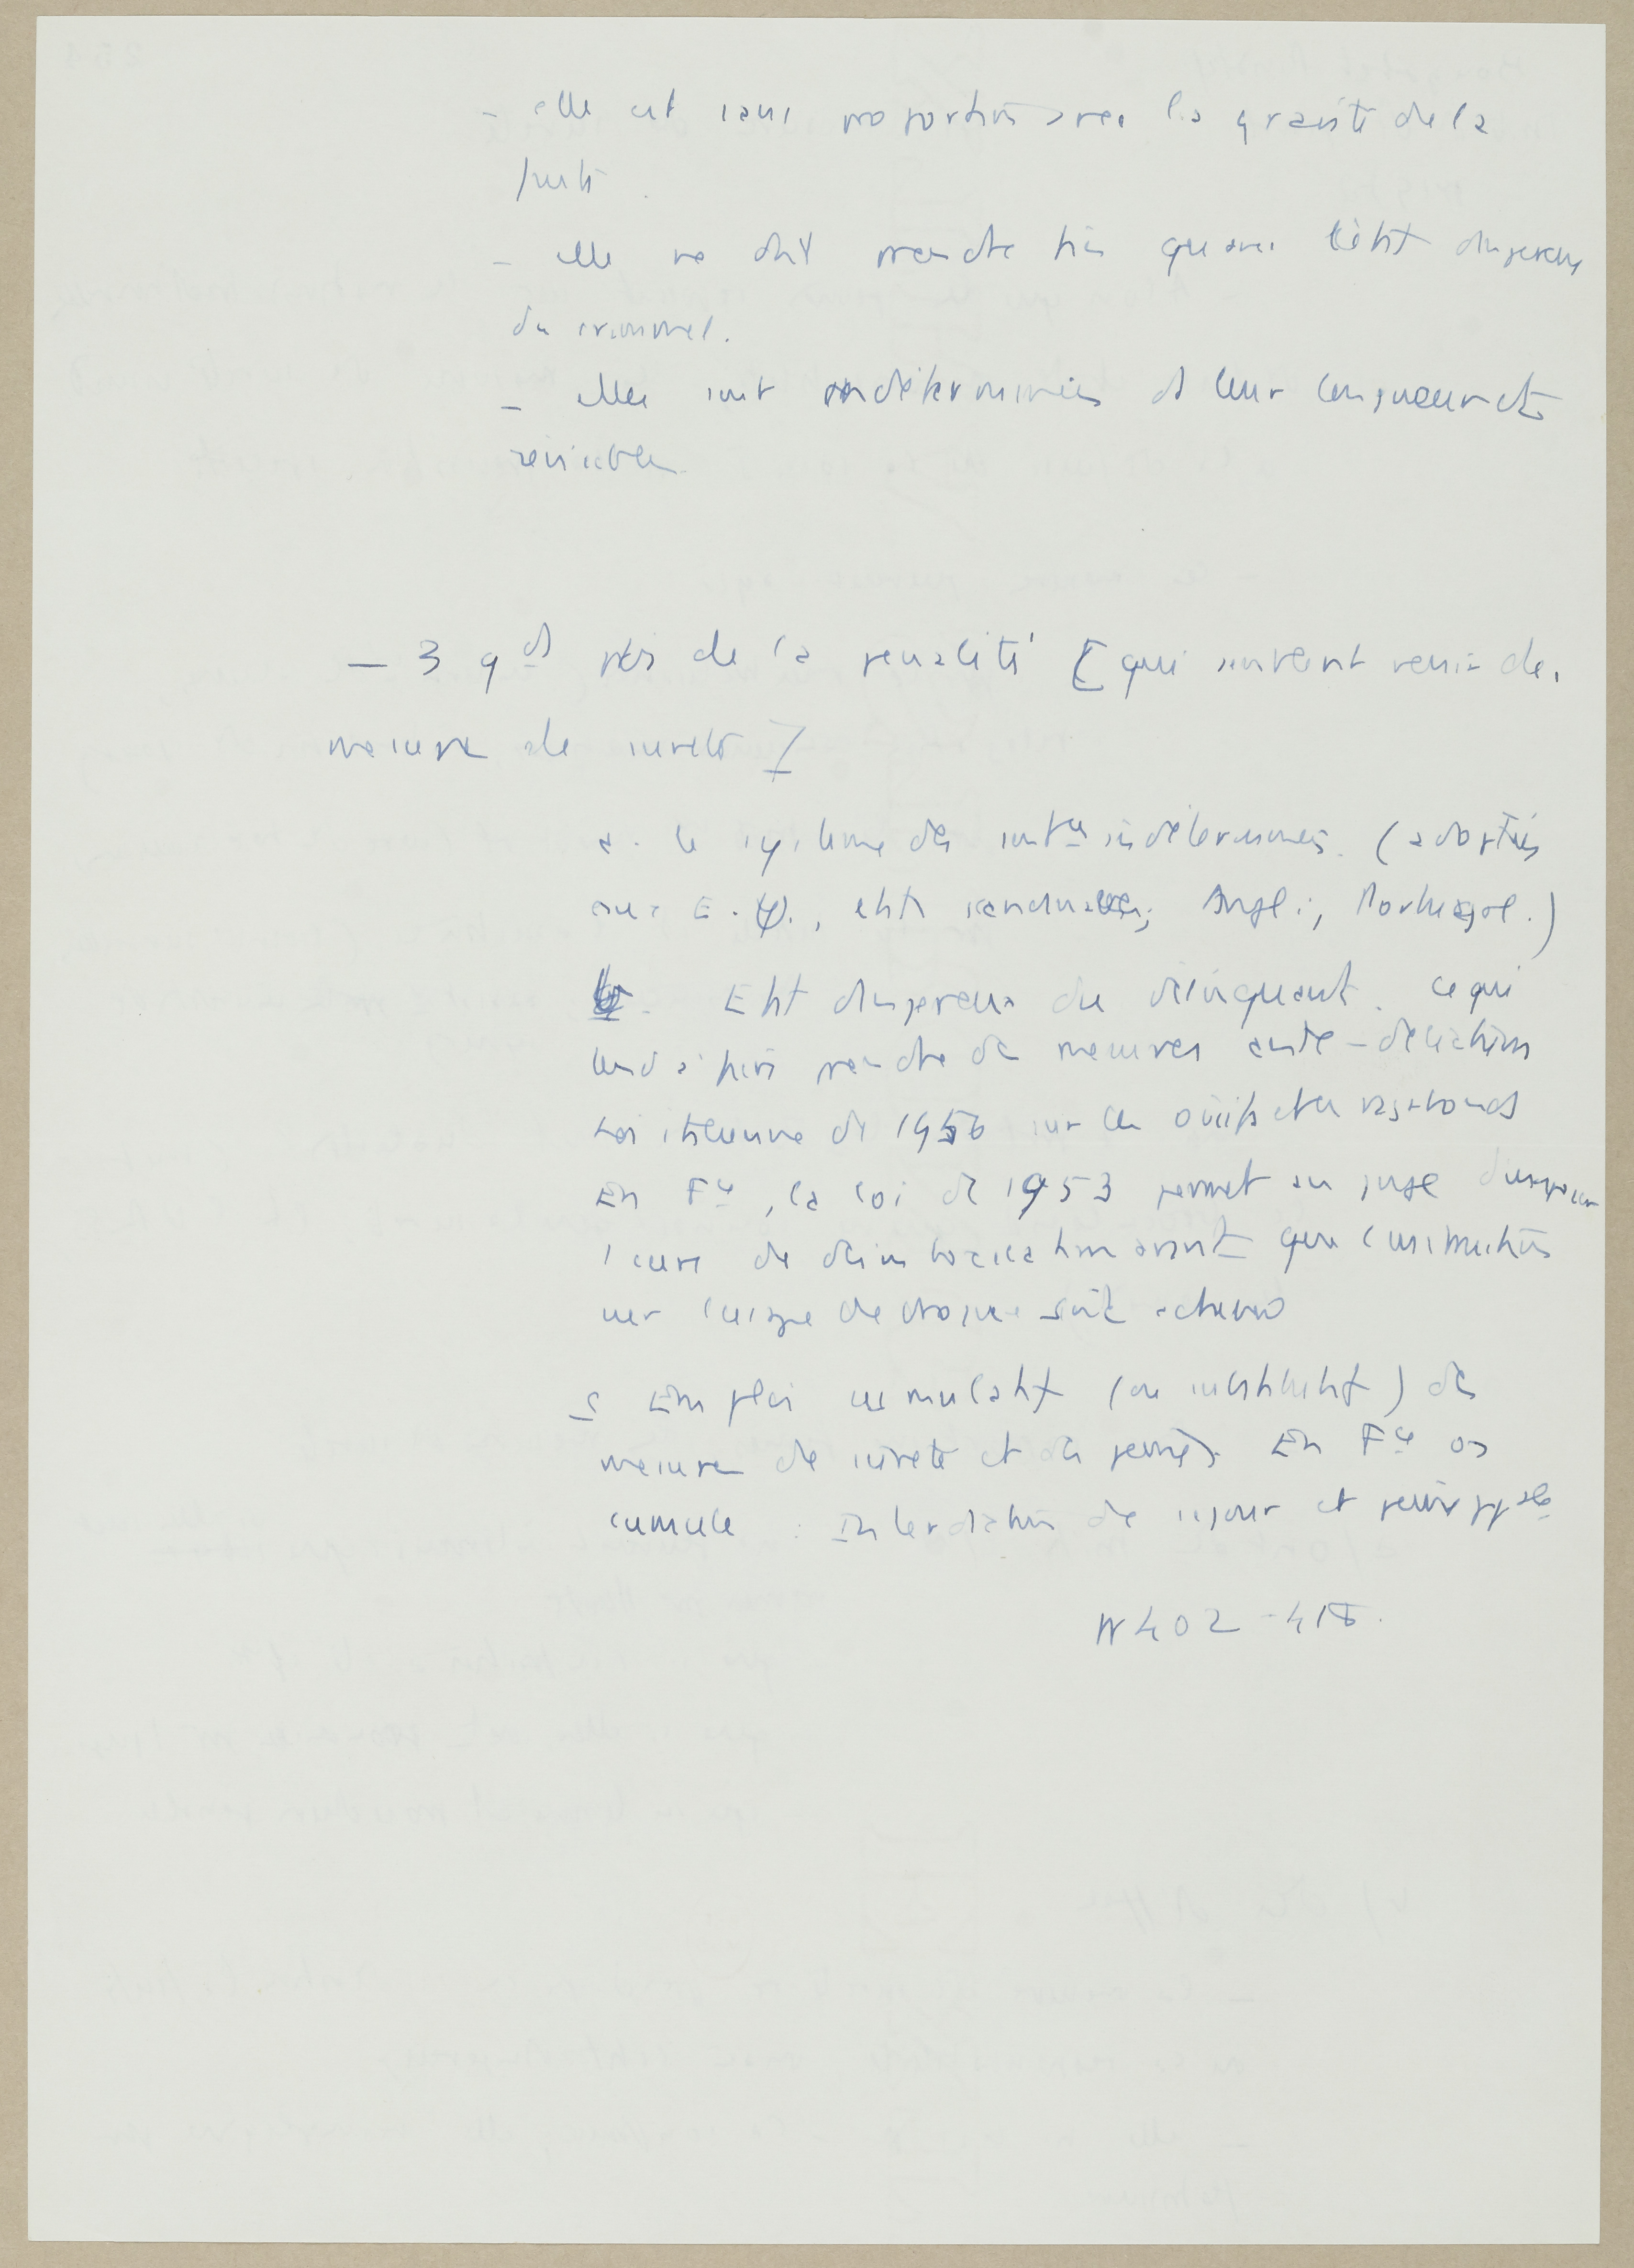 - elle est sans proportion avec la gravité de la
faute.
- elle ne doit prendre fin qu'avec l'état dangereux
du criminel.
- elles sont indéterminées et leur longueur est
révisable
- 3 gds de la pénalité [qui souvent
mesure de sureté]
a. le système des sentces indéterminées. (adoptées
aux E.U., états scandinaves, Angl., Portugal.)
b. Etat dangereux du délinquant. ce qui
à faire prendre des mesures ante-delictum
Loi italienne de 1956 sur les oisifs et les vagabonds
En Fce, la loi de 1953 permet au juge d'imposer
1 cure de désintoxication avant que l'instruction
sur l'usage de drogue soit achevée
c Emploi cumulatif (ou substitutif) des
mesures de sureté et des peines. En Fce on
cumule : Interdiction de séjour et peine
N 402-418.